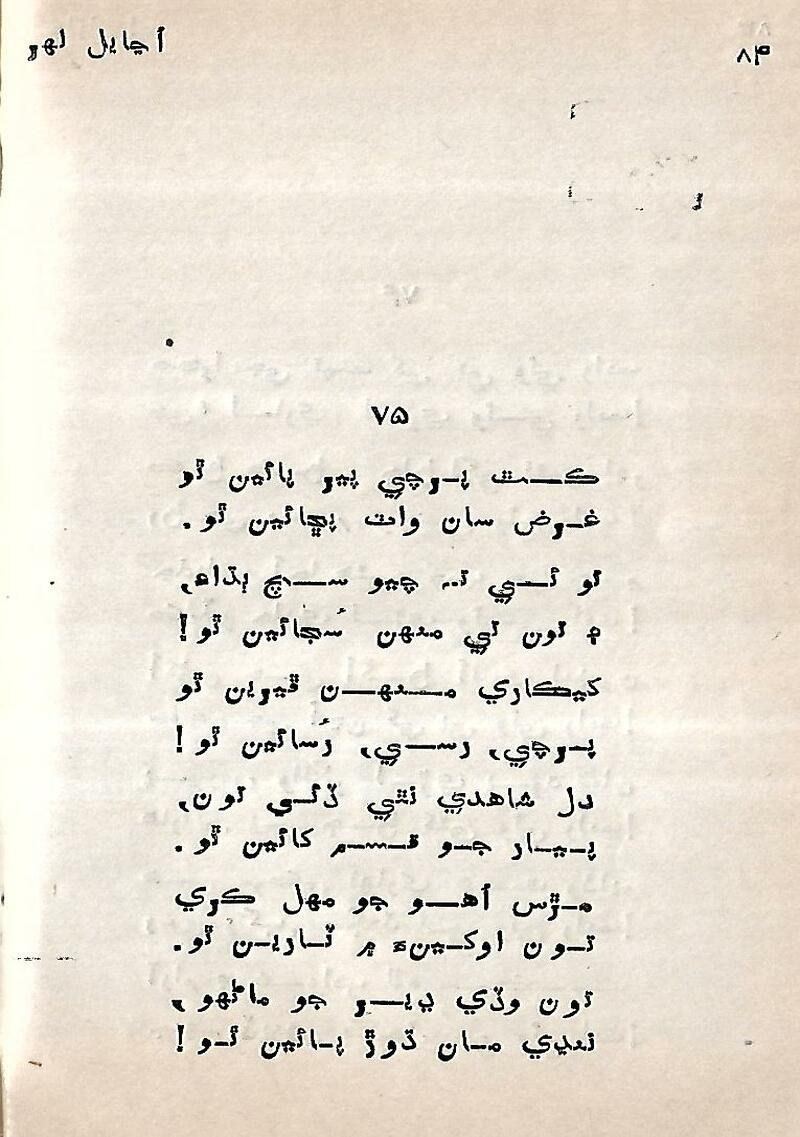 اُڃايل لهر
۸۴
۷۵
ڪٿ پرچي پير پائين ٿو
غرض سان واٽ پڇائين ٿو.
تو ئي تہ چيو سچ ٻڌاء،
۾ تون ئي منهن سُڄائين ٿو!
کيڪاري منهن ڦيرين ٿو
پرچي، رسي، رُسائين ٿو!
دل شاهدي نٿي ڏئي تون،
پيار جو قسم کائين ٿو.
مڙس اُهو جو مهل ڪري
تون اوکين۽ ۾ ٽارين ٿو.
تون وڏي جو ماڻهو،
ننڍي مان ڏوڙ پائين ٿو!